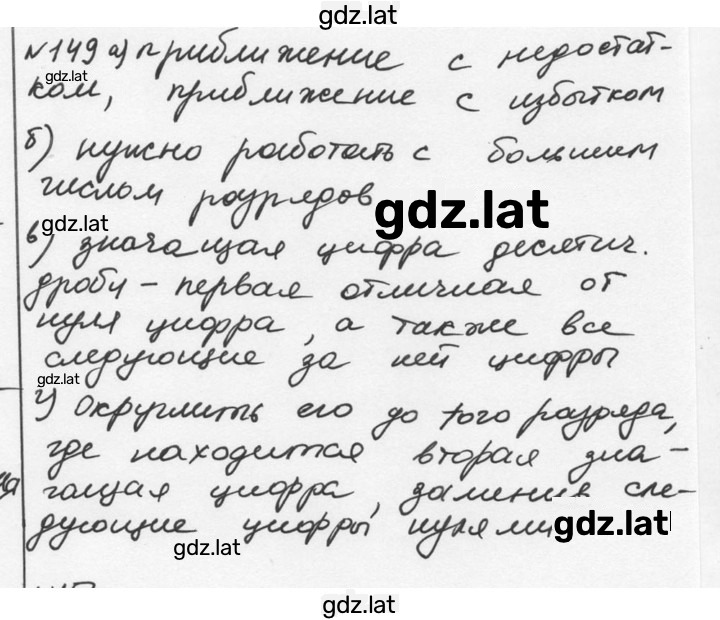 gdz.lat
№149 а) приближение с недостат-
gdz.lat
ком, приближение с избытком
б) нужно работать с большим
числом разрядов
gdz.lat
gdz.lat
в) значащая цифра десятич.
дроби - первая отличная от
нуля цифра, а также все
следующие за ней цифры
gdz.lat
г) Округлить его до того разряда,
где находится вторая зна-
чащая цифра, заменив сле-
дующие цифры нулями
gdz.lat
gdz.lat
gdz.lat